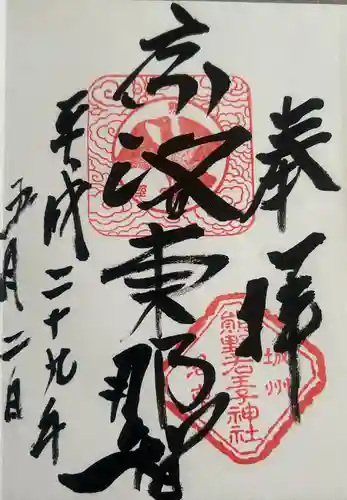 奉拝
京洛東那智
平成二十九年
五月二日
城州
熊野若王子神社